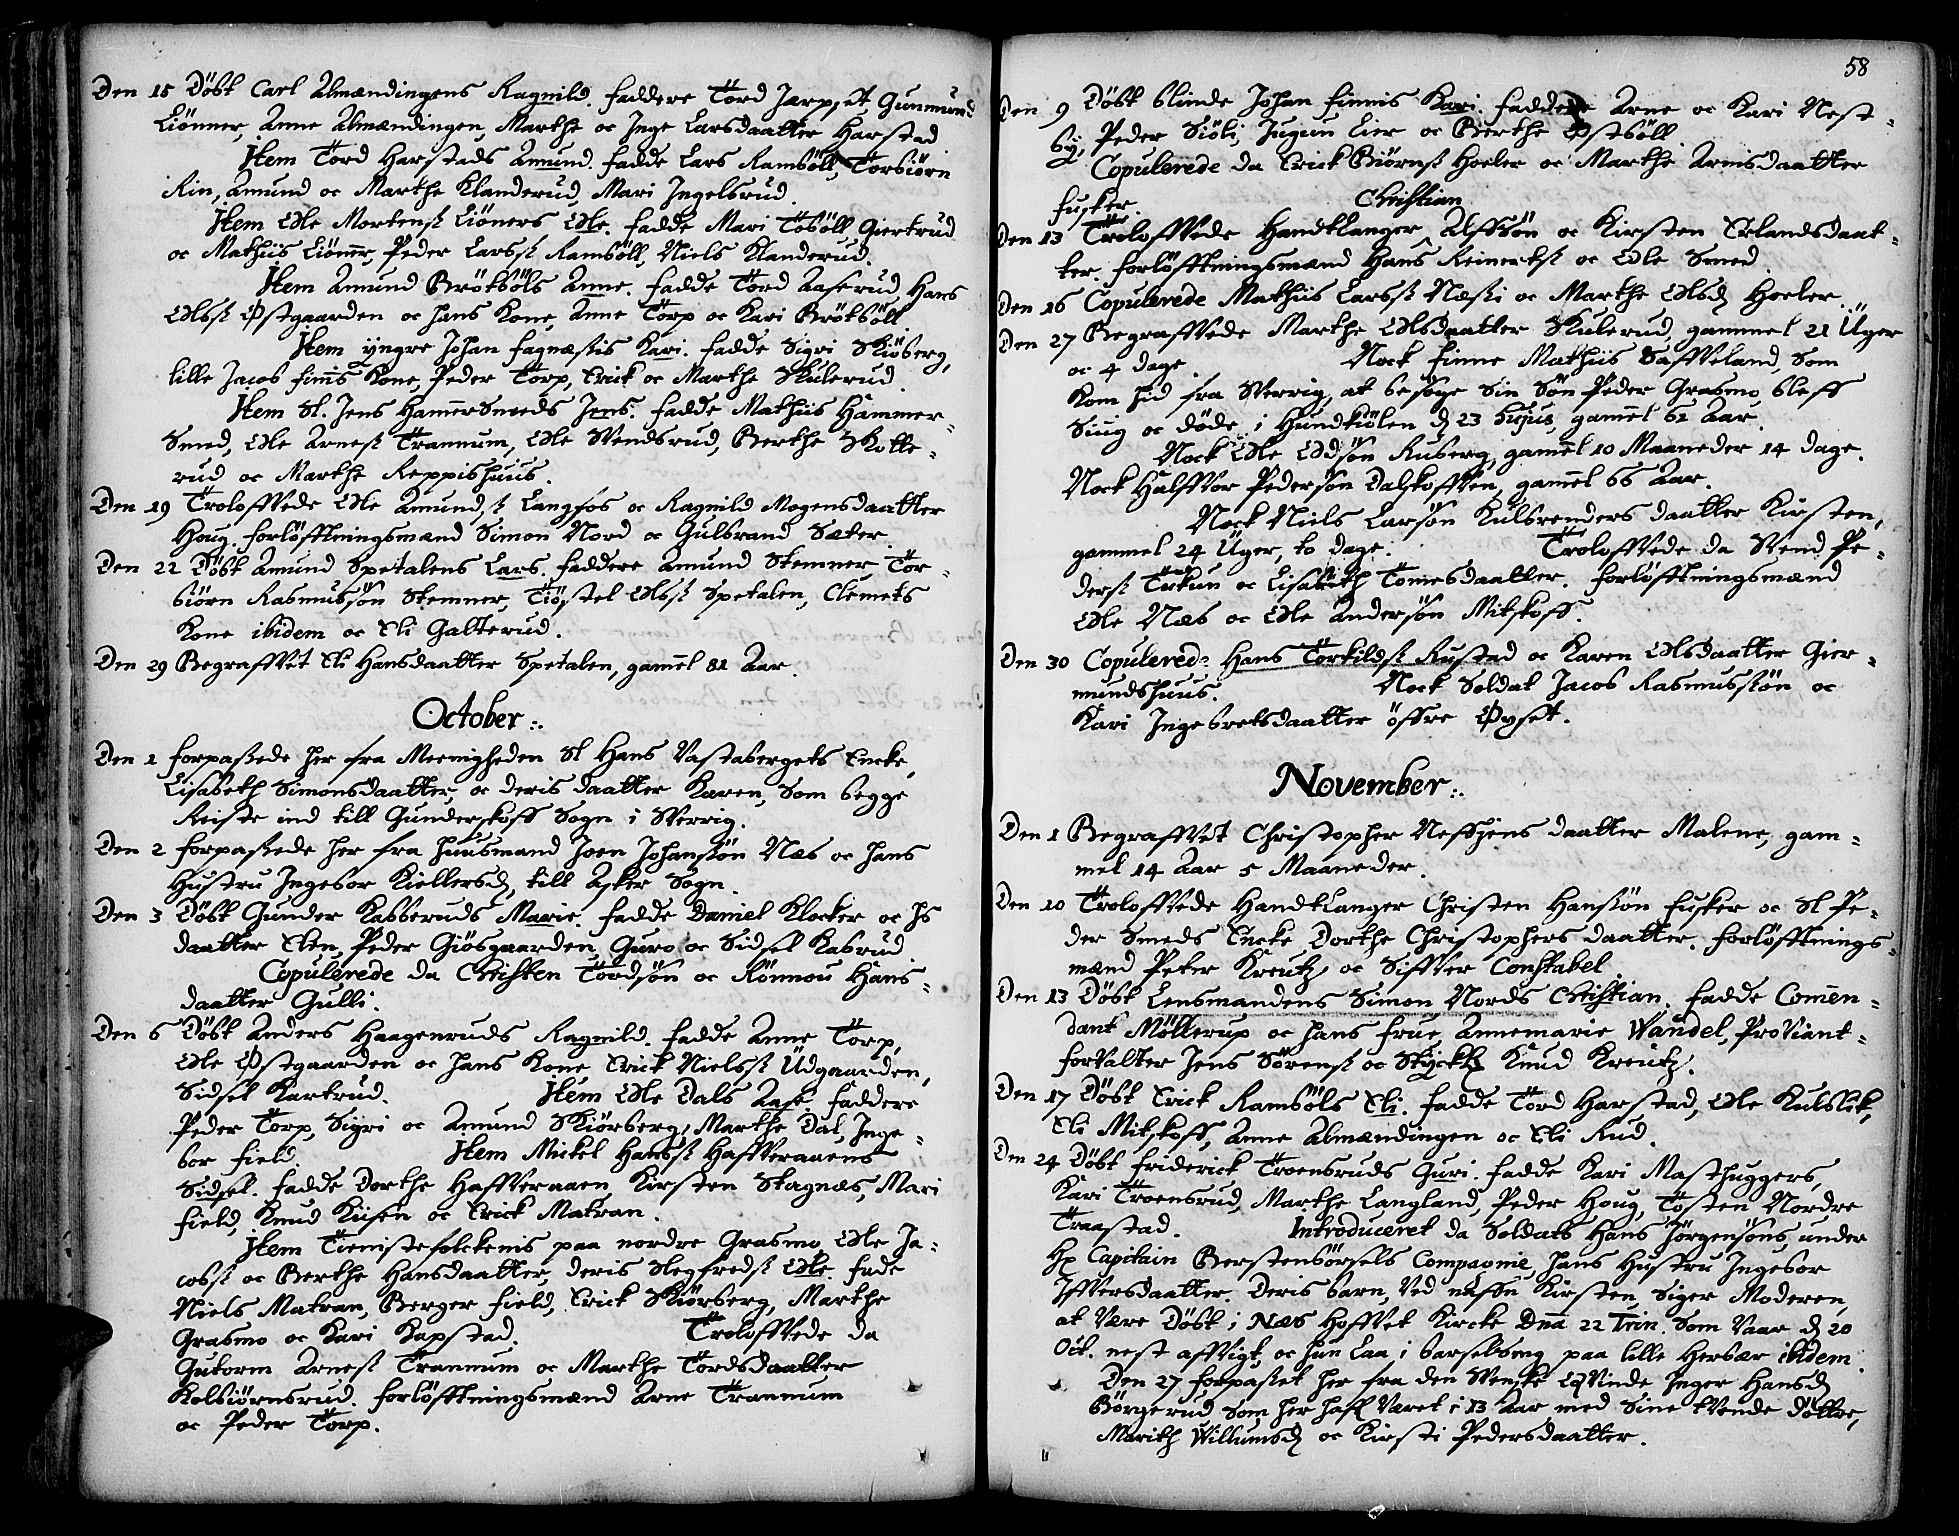 Den 15 Döbt Carl Almændingens Ragnild. Faddere Tord Jærp, et Gunmund
Liönner, Anne Almændingen, Marthe oc Inge Larsdaatter Harstad
Item Tord Harstads Amund. Fadde Lars Ramböll, Torbiörn
Rin, Amund oc Marthe Klanderud, Mari Ingelsrud.
Item Ole Mortens: Liöners, Ole. Fadde Mari Töböll Giertrud
oc Mathiis Liöner, Peder Larss: Ramböll, Niels Klanderud.
Item Amund Brötböls Anne. Fadde Tord Aaserud Hans
Olss: Østgaarden oc hans Kone, Anne Torp oc Kari Brötböll
Item yngre Johan Fagnæssis Kari. Fadde Sigri Skiöberg,
lille Jacob Finnis Kone, Peder Torp, Erick oc Marthe Skulerud.
Item Sl. Jens HammerSmeds Jens. Fadde Mathiis Hammer-
Smed, Ole Arness: Trannum, Ole Svendsrud, Berthe Skolle-
rud oc Marthe Reppishuus.
Den 19 Troloffvede Ole Amunds: Langfos oc Ragnild Mogensdaatter
Houg. Forlöfftningsmænd Simon Nord oc Gulbrand Sæter
Den 22 Döbt Amund Spetalens Lars. Faddere Amund Stemner Tor-
biörn Rasmussön Stemner, Tiöstel Olss: Spetalen, Clemets
Kone ibidem oc Eli Galterud.
Den 29 Begraffvet Eli Hansdaatter Spetalen, gamel 81 Aar.
October:.
Den 1 forpassede her fra Meenigheden Sl Hans Vastabergets Encke,
Lisabeth Simonsdaatter, oc deris daatter Karen, Som begge
Reiste ind till Gunderskoff Sogn i Sverrig.
Den 2 forpassede her fra huusmand Joen Johansön Næs oc hans
Hustru Ingebor Kiellersd, till Asker Sogn.
Den 3 Döbt Gunder Kasseruds Marie. Fadde Daniel Klocker oc hs
daatter Elen, Peder Giösgaarden, Guro oc Sidsel Kasrud.
Copulerede da Christen Tordsön oc Rönnou Hans-
daatter Gulli.
Den 6 Döbt Anders Haagenruds Ragnild. Fadde Anne Torp,
Ole Østgaarden oc hans Kone Erick Nielss: Üdgaarden,
Sidsel Kartrud. Item Ole Dals Aase. Faddere
Peder Torp, Sigri oc Amund Skiörberg, Marthe Dal, Inge-
bor Field. Item Mickel Hanss: Haffveraaens
Sidsel. Fadde Dorthe Haffveraaen Kirsten Skagnæs, Mari
Field, Knud Kiisen oc Erick Matran.
Item Tienistefolckenis paa nordre Grasmo, Ole Ja-
cobs: oc Berthe Hansdaatter, deris Slegfreds: Ole. Fade
Niels Matran, Berger Field, Erick Skiörberg, Marthe
Grasmo oc Kari Kapstad. Troloffvede da
Gutorm Arness: Trannum oc Marthe Tordsdaatter
Kolbiörnsrud. Forlöfftningsmænd Arne Trannum
oc Peder Torp.
58
Den 9 Döbt blinde Johan Finnis Kari. Faddere Arne oc Kari Nest-
by, Peder Siöli, Jugun Lier oc Berthe Østböll.
Copulerede da Erick Biörns: Hoeler oc Marthe Arnisdaatter
Fusker. Christian
Den 13 Troloffvede Handtlanger Alffsön oc Kirsten Erlandsdaat-
ter. Forlöfftningsmænd Hans Reinertss: oc Ole Smed.
Den 16 Copulerede Mathiis Larss: Næski oc Marthe Olsd Hoeler.
Den 27 Begraffvede Marthe Olsdaatter Skulerud, gammel 21 Üger
oc 4 dage. Nock Finne Mathiis Saffveland, Som
kom hid fra Sverrig, at besöge Sin Sön Peder Grasmo bleff
Siug oc döde i Hundkiölen d 23 hujus, gamel 62 Aar.
Nock Ole Odsön Ruberg, gamel 10 Maaneder 14 dage.
Nock Halffvor Pedersön Dalskoffven, gamel 66 Aar.
Nock Niels Larsön Kulbrenders daatter Kirsten,
gammel 24 Üger, to dage. Troloffvede da Svend Pe-
derss: Tirkun oc Lisabeth Tomesdaatter. Forlöfftningsmænd
Ole Næs oc Ole Andersön Mitskoff.
Den 30 Copulered: Hans Torkilds: Rustad oc Karen Olsdaatter Gier-
mundshuus. Nock Soldat Jacob Rasmussön oc
Kari Ingebretsdaatter öffre Øyset.
November:.
Den 1 Begraffvet Christopher Neffhiens daatter Malene, gam-
mel 14 Aar 5 Maaneder.
Den 10 Troloffvede Handtlanger Christen Hansön Fusker oc Sl Pe-
der Smeds Encke Dorthe Christophersdaatter. Forlöfftnings-
mænd Peter Kreutz oc Siffver Constabel
Den 13 Döbt Lensmandens Simon Nords Christian. Fadde Comen-
dant Möllerup oc hans frue, Annemarie Wandel, Proviant-
forvalter Jens Sörens: oc Stycktz Knud Kreutz.
Den 17 Döbt Erick Ramböls Eli. Fadde Tord Harstad, Ole Kulblik,
Eli Mitskoff, Anne Almændingen oc Eli Rud.
Den 24 Döbt Friderick Troensruds Guri. Fadde Kari Masthuggers,
Kari Troensrud, Marthe Langland, Peder Houg, Tosten Nordre
Traastad. Introduceret da Soldats Hans Jörgensöns, under
Hr Capitain Berstensörsels Compagnie, hans Hustru Ingebor
Iffversdaatter. Deris barn, ved nafn Kirsten, Siger Moderen,
at være Döbt i Næs Hoffvet Kircke Dnã 22 Trin. Som vaar d 20
Oct. nest affvigt oc hun laa i barselseng paa lille Herbær ibidem.
Den 27 forpasset her fra den Svenske Qvinde Inger Hansd
Börgerud Som her haff været i 13 Aar med Sine tvende Döttre,
Marith Willumsd oc Kirsti Pedersdaatter.